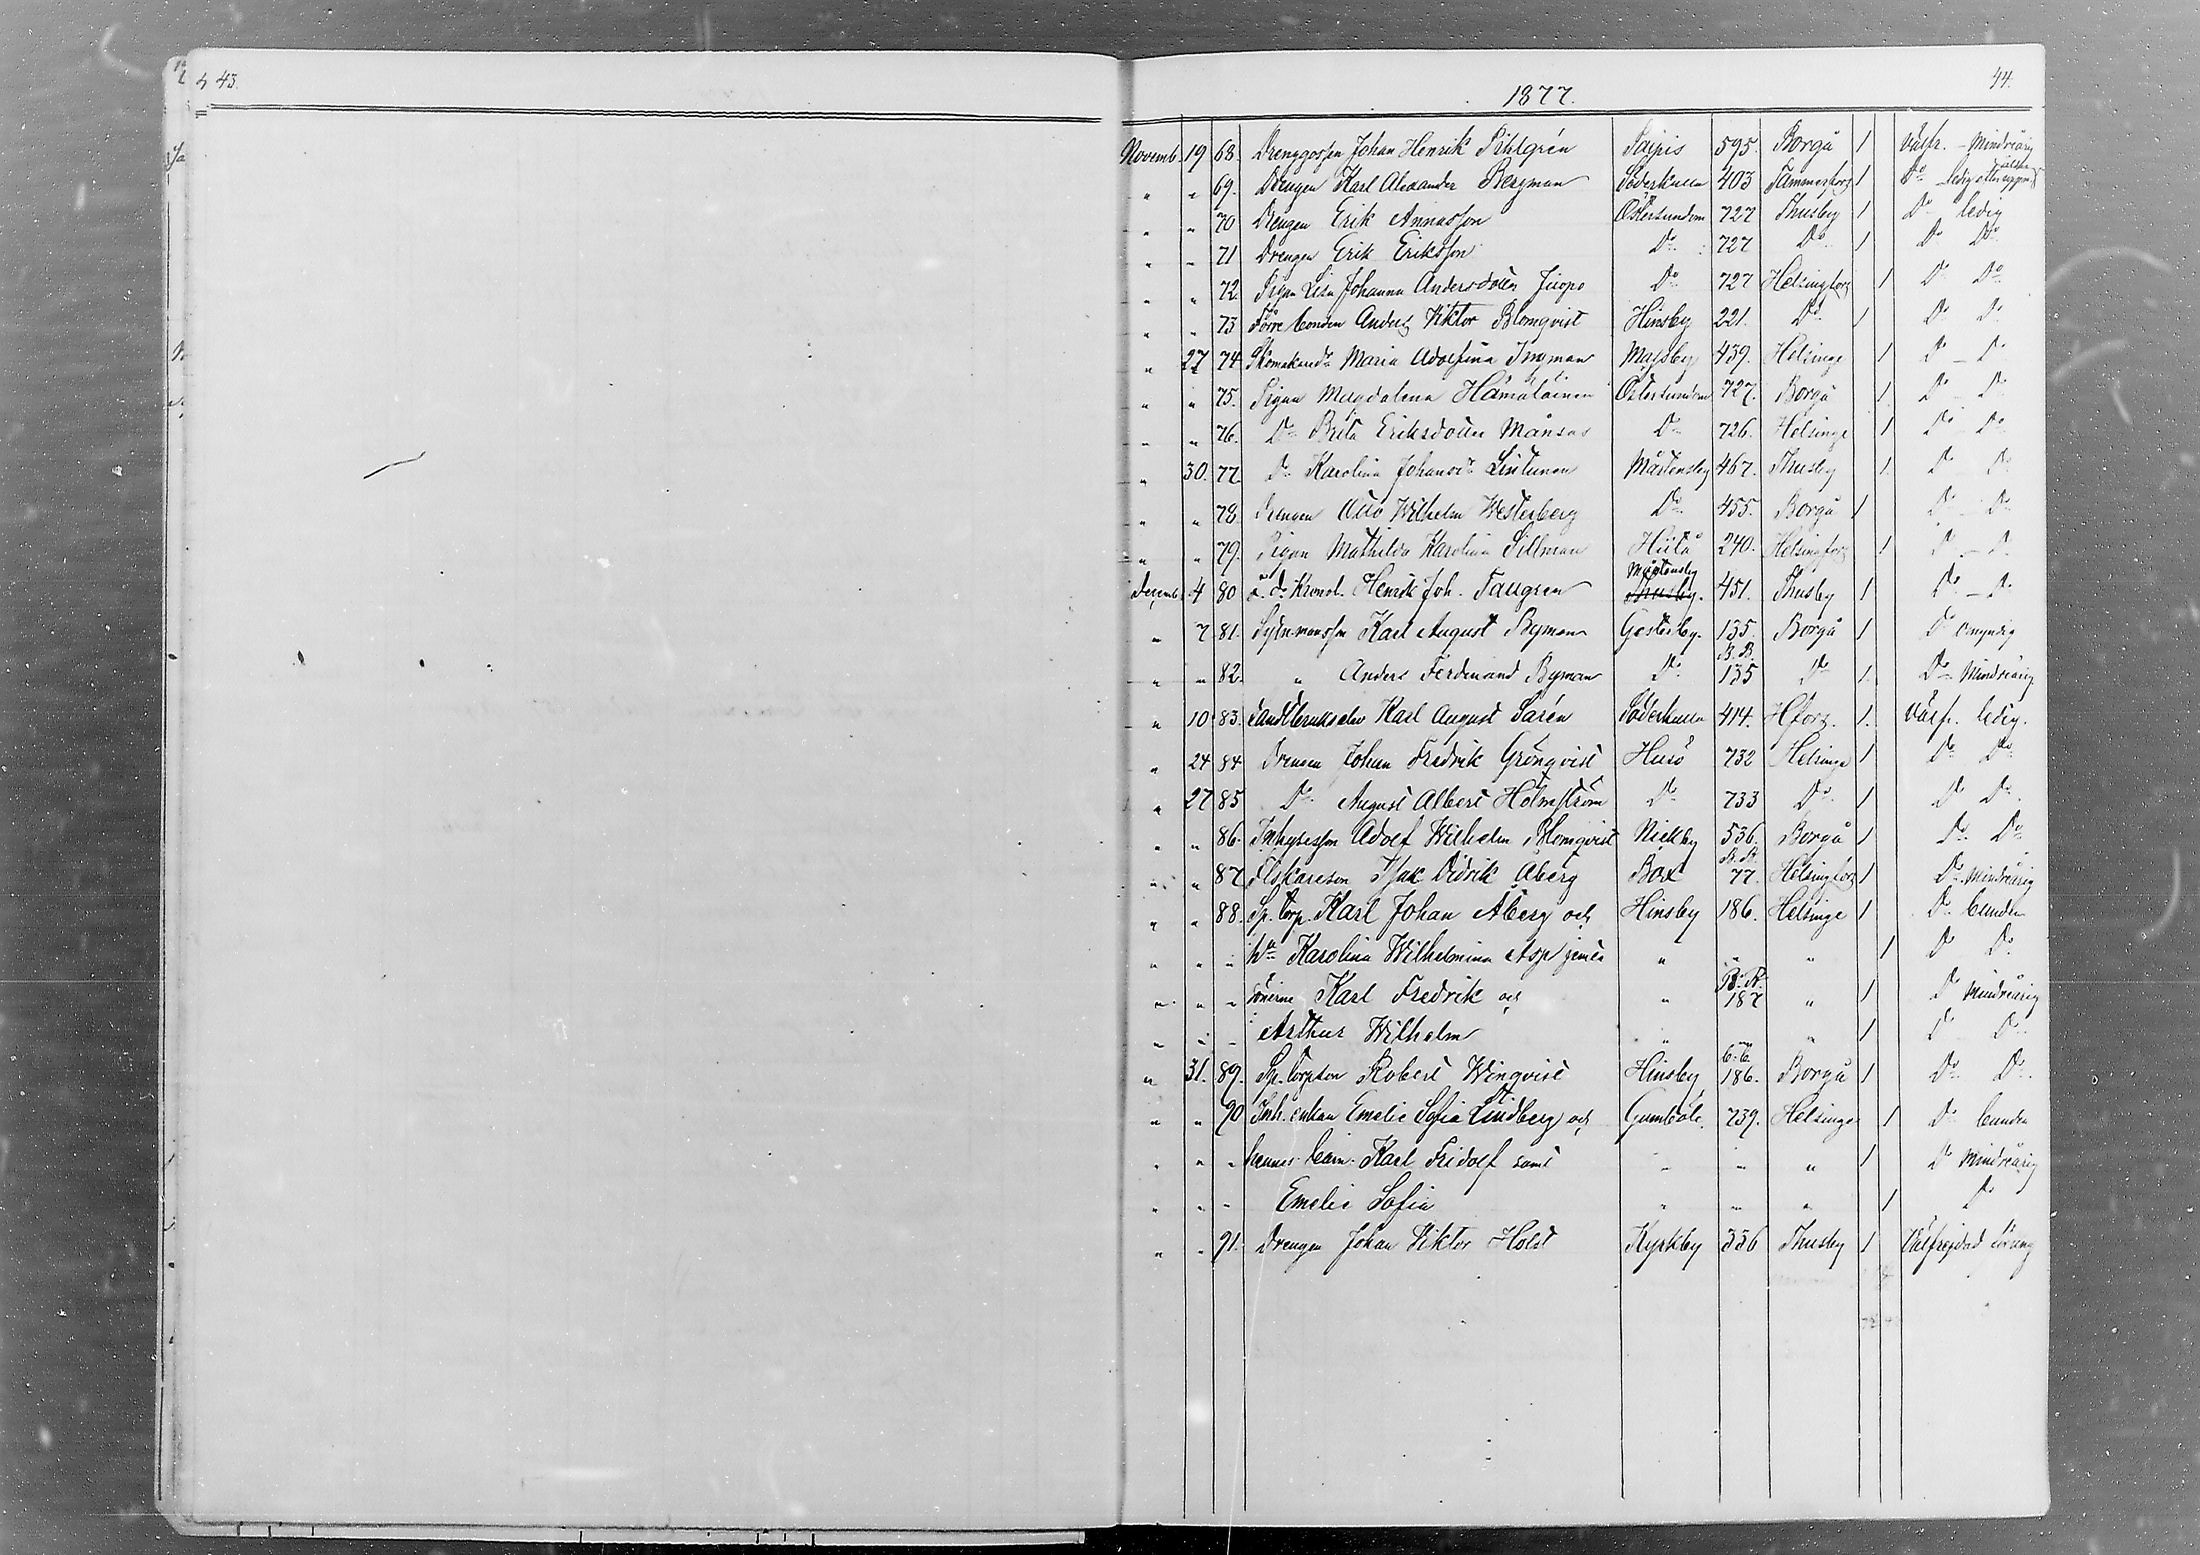 43.
44.
1877.
Novemb. 19 68. Drenggossen Johan Henrik Sihlgrén Paipis 595. Borgå 1 Välfr. - Mindreårig
" " 69. Drengen Karl Alexander Bergman Söderkulla 403 Tammerfors 1 Do ledig
" " 70 Drengen Erik Annasson Östersundom 727 Thusby 1 Do ledig
" " 71 Drengen Erik Eriksson Do 727 Do 1 Do Do
" " 72 Pigan Lisa Johanna Andersdotter Do 727 Helsingfors 1 Do Do
" " 73 Förre bonden Anders Viktor Blomqvist Hinsby 221. Do 1 Do Do
" 27 74 Maria Adolfina Ingman Massby 439. Helsinge 1 Do - Do
" " 75. Pigan Magdalena Hämäläinen Östersundom 727. Borgå 1 Do - Do
" " 76. Do Brita Eriksdotter Månsas Do 726. Helsinge 1 Do - Do
" 30. 77 Do Karolina Johansdr Lintunen Mårtensby 467. Thusby 1. Do Do
" " 78. Drengen Otto Wilhelm Westerberg Do 455. Borgå 1 Do - Do
" " 79. Pigan Mathilda Karolina Sillman Hiitå 240. Helsingfors 1 Do - Do
Mårtensby
Decemb. 4 80 Henrik Joh. Taugren Thusby. 451. Thusby 1 Do - Do
" 7 81. Karl August Byman Gesterby. 135. Borgå 1 Do omyndig
B.B.
" " 82. " Anders Ferdinand Byman Do 135 Do 1. Do Mindreårig
" 10 83. Landtbrukselev Karl August Sarén Söderkulla 414. Hfors. 1. Välfr. ledig.
" 24 84 Drengen Johan Fredrik Grönqvist Husö 732 Helsinge 1 Do Do
" 27 85 Do August Albert Holmström Do 733 Do 1 Do Do.
" " 86. Inhysesson Adolf Wilhelm Blomqvist Nickby 536. Borgå 1 Do Do
" " 87. Fiskareson Isak Didrik Åberg Box 77. Helsingfors 1 Do Mindreårig
" " 88. Sp. torp. Karl Johan Åberg och Hinsby 186. Helsinge 1 Do bunden
" " " Karolina Wilhelmina Asp jemte " " " 1 Do Do
" " " sönerne Karl Fredrik och " 187 " 1 Do Mindreårig
" " " Arthur Wilhelm " " " 1 Do Do
" 31. 89. Sp. torpson Robert Winqvist Hinsby 186. Borgå 1 Do Do
" " 90 Inh. enkan Emelie Sofia Lindberg och Gumböle. 739. Helsinge 1 Do bunden
" " " hennes barn. Karl Fridolf samt " " " 1 Do Mindreårig
" " " Emelie Sofia " " " 1 Do
" " 91. Drengen Johan Viktor Holst Kyrkby 336 Thusby 1 Välfrejdad